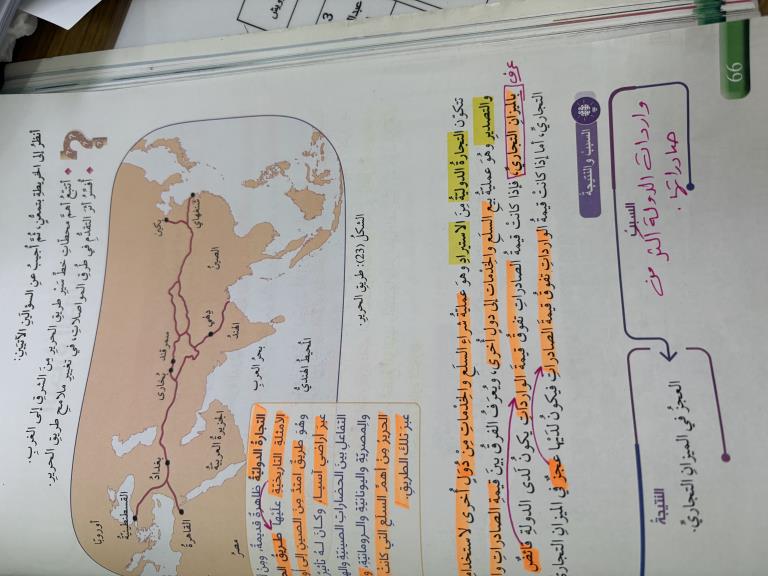 أنظرُ إلى الخريطةِ بتمعُّنٍ، ثمَّ أُجيبُ عنِ السؤالينِ الآتيينِ:
أتتبَّعُ أهمَّ محطاتِ خطِّ سيرِ طريقِ الحريرِ منَ الشرقِ إلى الغربِ.
أُفسِّرُ أثرَ التقدُّمِ في طرقِ المواصلاتِ، في تغييرِ ملامحِ طريقِ الحريرِ.
أوروبا
القسطنطينيّة
القاهرة
مصر
بغداد
الجزيرة العربية
بخارى
سمرقند
بحر العرب
المحيط الهندي
دلهي
الهند
الصين
بكين
شنغهاي
الشكل (23): طريق الحرير.
التجارةُ الدوليّةُ ظاهرةٌ قديمةٌ، ومن
الأمثلةِ التاريخيّةِ عليها طريقُ
وهوَ طريقٌ امتدَّ منَ الصينِ إلى
عبرَ أراضي آسيا، وكانَ لهُ
التفاعلِ بينَ الحضاراتِ الصينيّةِ
والمصريّةِ واليونانيّةِ والرومانيّةِ،
الحريرُ من أهمِّ السلعِ التي كانت
عبرَ تلكَ الطريقِ.
تتكوّنُ التجارةُ الدوليّةُ منَ الاستيرادِ وهوَ عمليّةُ شراءِ السلعِ والخدماتِ من دولٍ أخرى
والتصديرِ وهوَ عمليّةُ بيعِ السلعِ والخدماتِ إلى دولٍ أخرى، ويُعرَفُ الفرقُ بينَ قيمةِ الصادراتِ
عرف
بالميزانِ التجاريِّ، فإذا كانتْ قيمةُ الصادراتِ تفوقُ قيمةَ الوارداتِ يكونُ لدى الدولةِ فائضٌ
التجاريِّ، أما إذا كانتْ قيمةُ الوارداتِ تفوقُ قيمةَ الصادراتِ فيكونُ لديْها عجزٌ في الميزانِ
السبب والنتيجة
السبب
واردات الدولة أكثر من
صادراتها.
النتيجة
العجزُ في الميزانِ التجاريِّ.
66